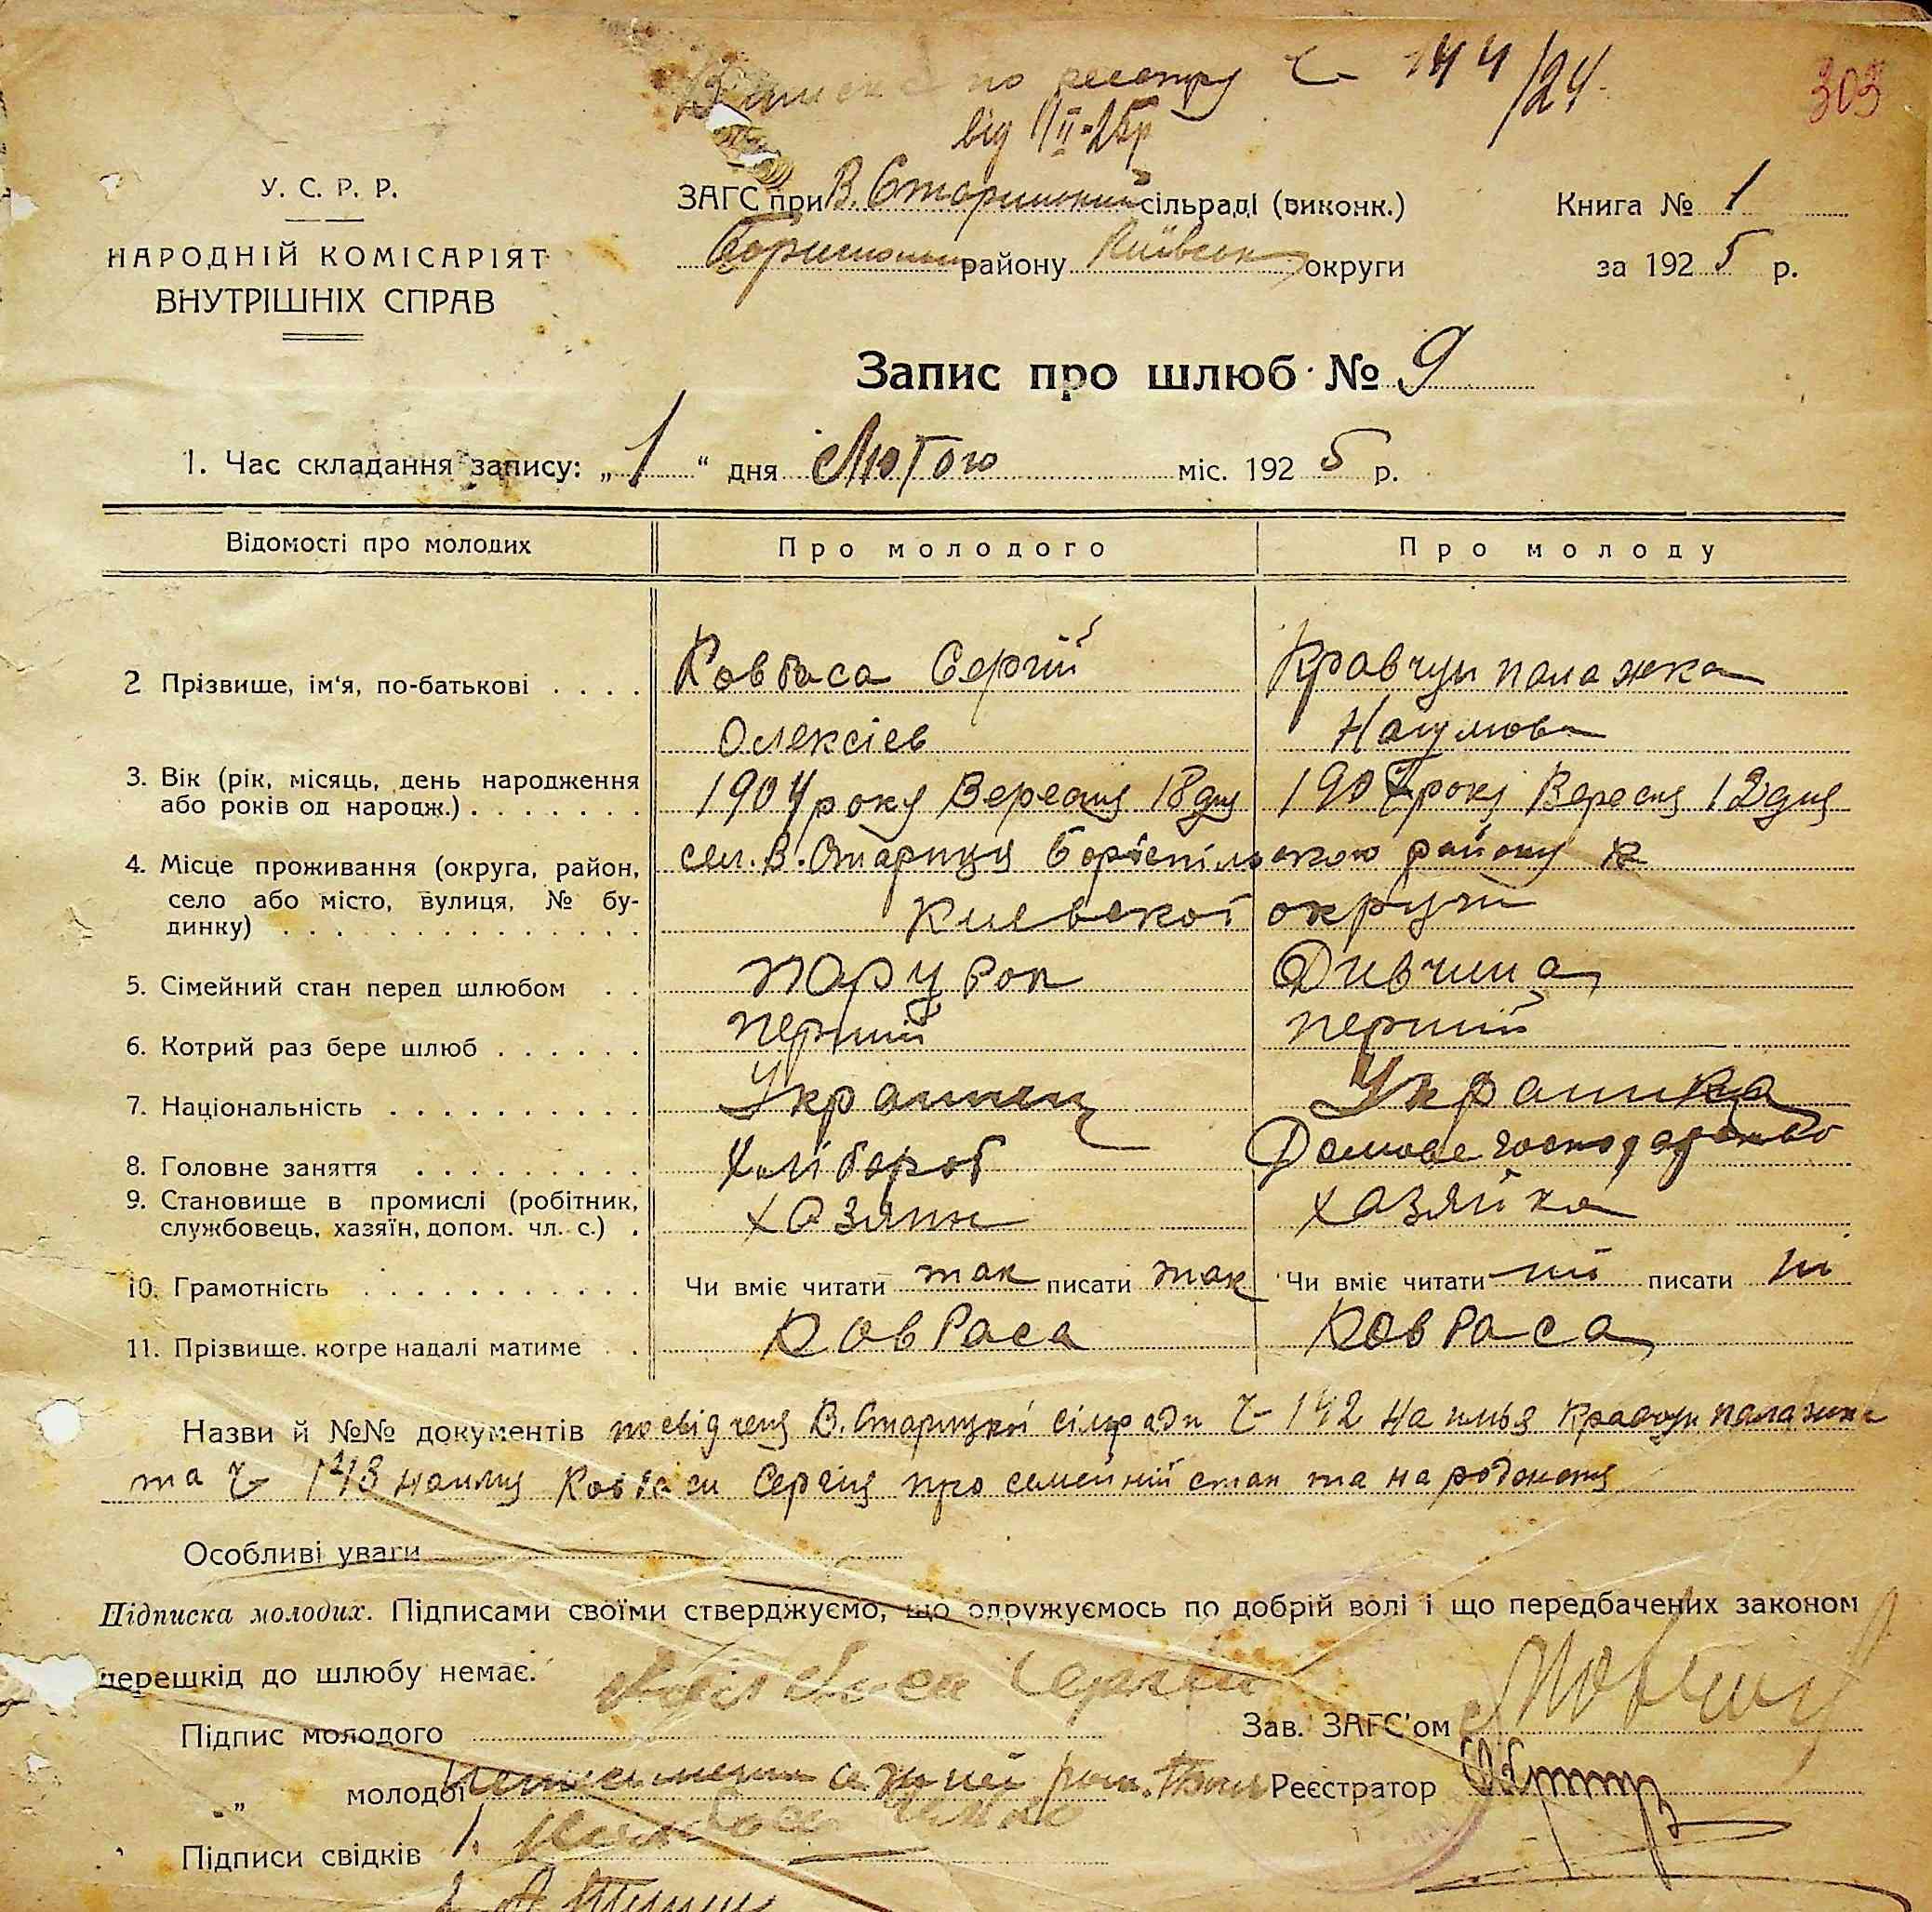 по реєстру Ч- 144/24.
від 1/II-25р
303
У. С. Р. Р.
НАРОДНІЙ КОМІСАРІЯТ
ВНУТРІШНІХ СПРАВ
ЗАГС при В. Старицький сільраді (виконк.)
району Київськ округи
Книга № 1
за 1925 р.
Запис про шлюб № 9
1. Час складання запису: „1“ дня Лютого міс. 1925 р.
Відомості про молодих
Про молодого
Про молоду
2 Прізвище, ім'я, по-батькові
Ковбаса Сергій
Олексієв
Кравчун Палажка
Наумова
3. Вік (рік, місяць, день народження
або років од народж.)
1904 року Вересня 18 дня
1907 року Вересня 12 дня
4. Місце проживання (округа, район,
село або місто, вулиця, № бу-
динку)
сел. В. Стариця Боріспільского району
Киевскої округи
5. Сімейний стан перед шлюбом
парубок
Дивчина
6. Котрий раз бере шлюб
перший
перший
7. Національність
Украинец
Украинка
8. Головне заняття
Хлібороб
Домове господарство
9. Становище в промислі (робітник,
службовець, хазяїн, допом. чл. с.)
хазяин
хазяйка
10. Грамотність
Чи вміє читати так писати так
Чи вміє читати ні писати ні
11. Прізвище, котре надалі матиме
Ковбаса
Ковбаса
Назви й №№ документів посвідченя В. Старицької сільради Ч- 142 на имья Кравчун Палажки
та Ч- 143 на имя Ковбаси Сергия про семейний стан та народженя
Особливі уваги
Підписка молодих. Підписами своїми стверджуємо, що одружуємось по добрій волі і що передбачених законом
перешкід до шлюбу немає.
Підпис молодого
Сергій
Зав. ЗАГС'ом
„ молодої
Реєстратор
Підписи свідків 1.